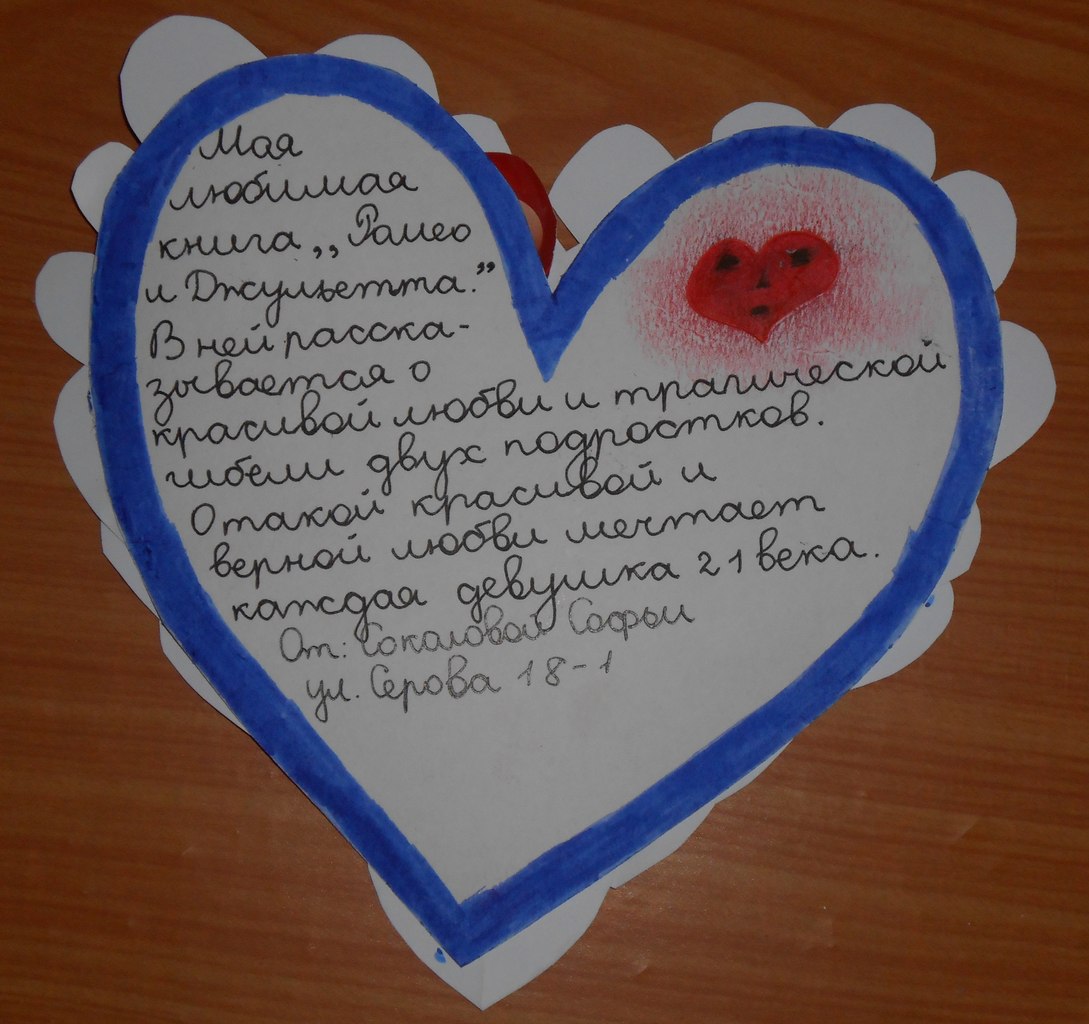 Мая
любимая
книга „Ромео
и Джульетта."
В ней расска-
зывается о
красивой любви и трагической
гибели двух подростков.
О такой красивой и
верной любви мечтает
каждая девушка 21 века.
От: Соколовой Софьи
ул. Серова 18-1